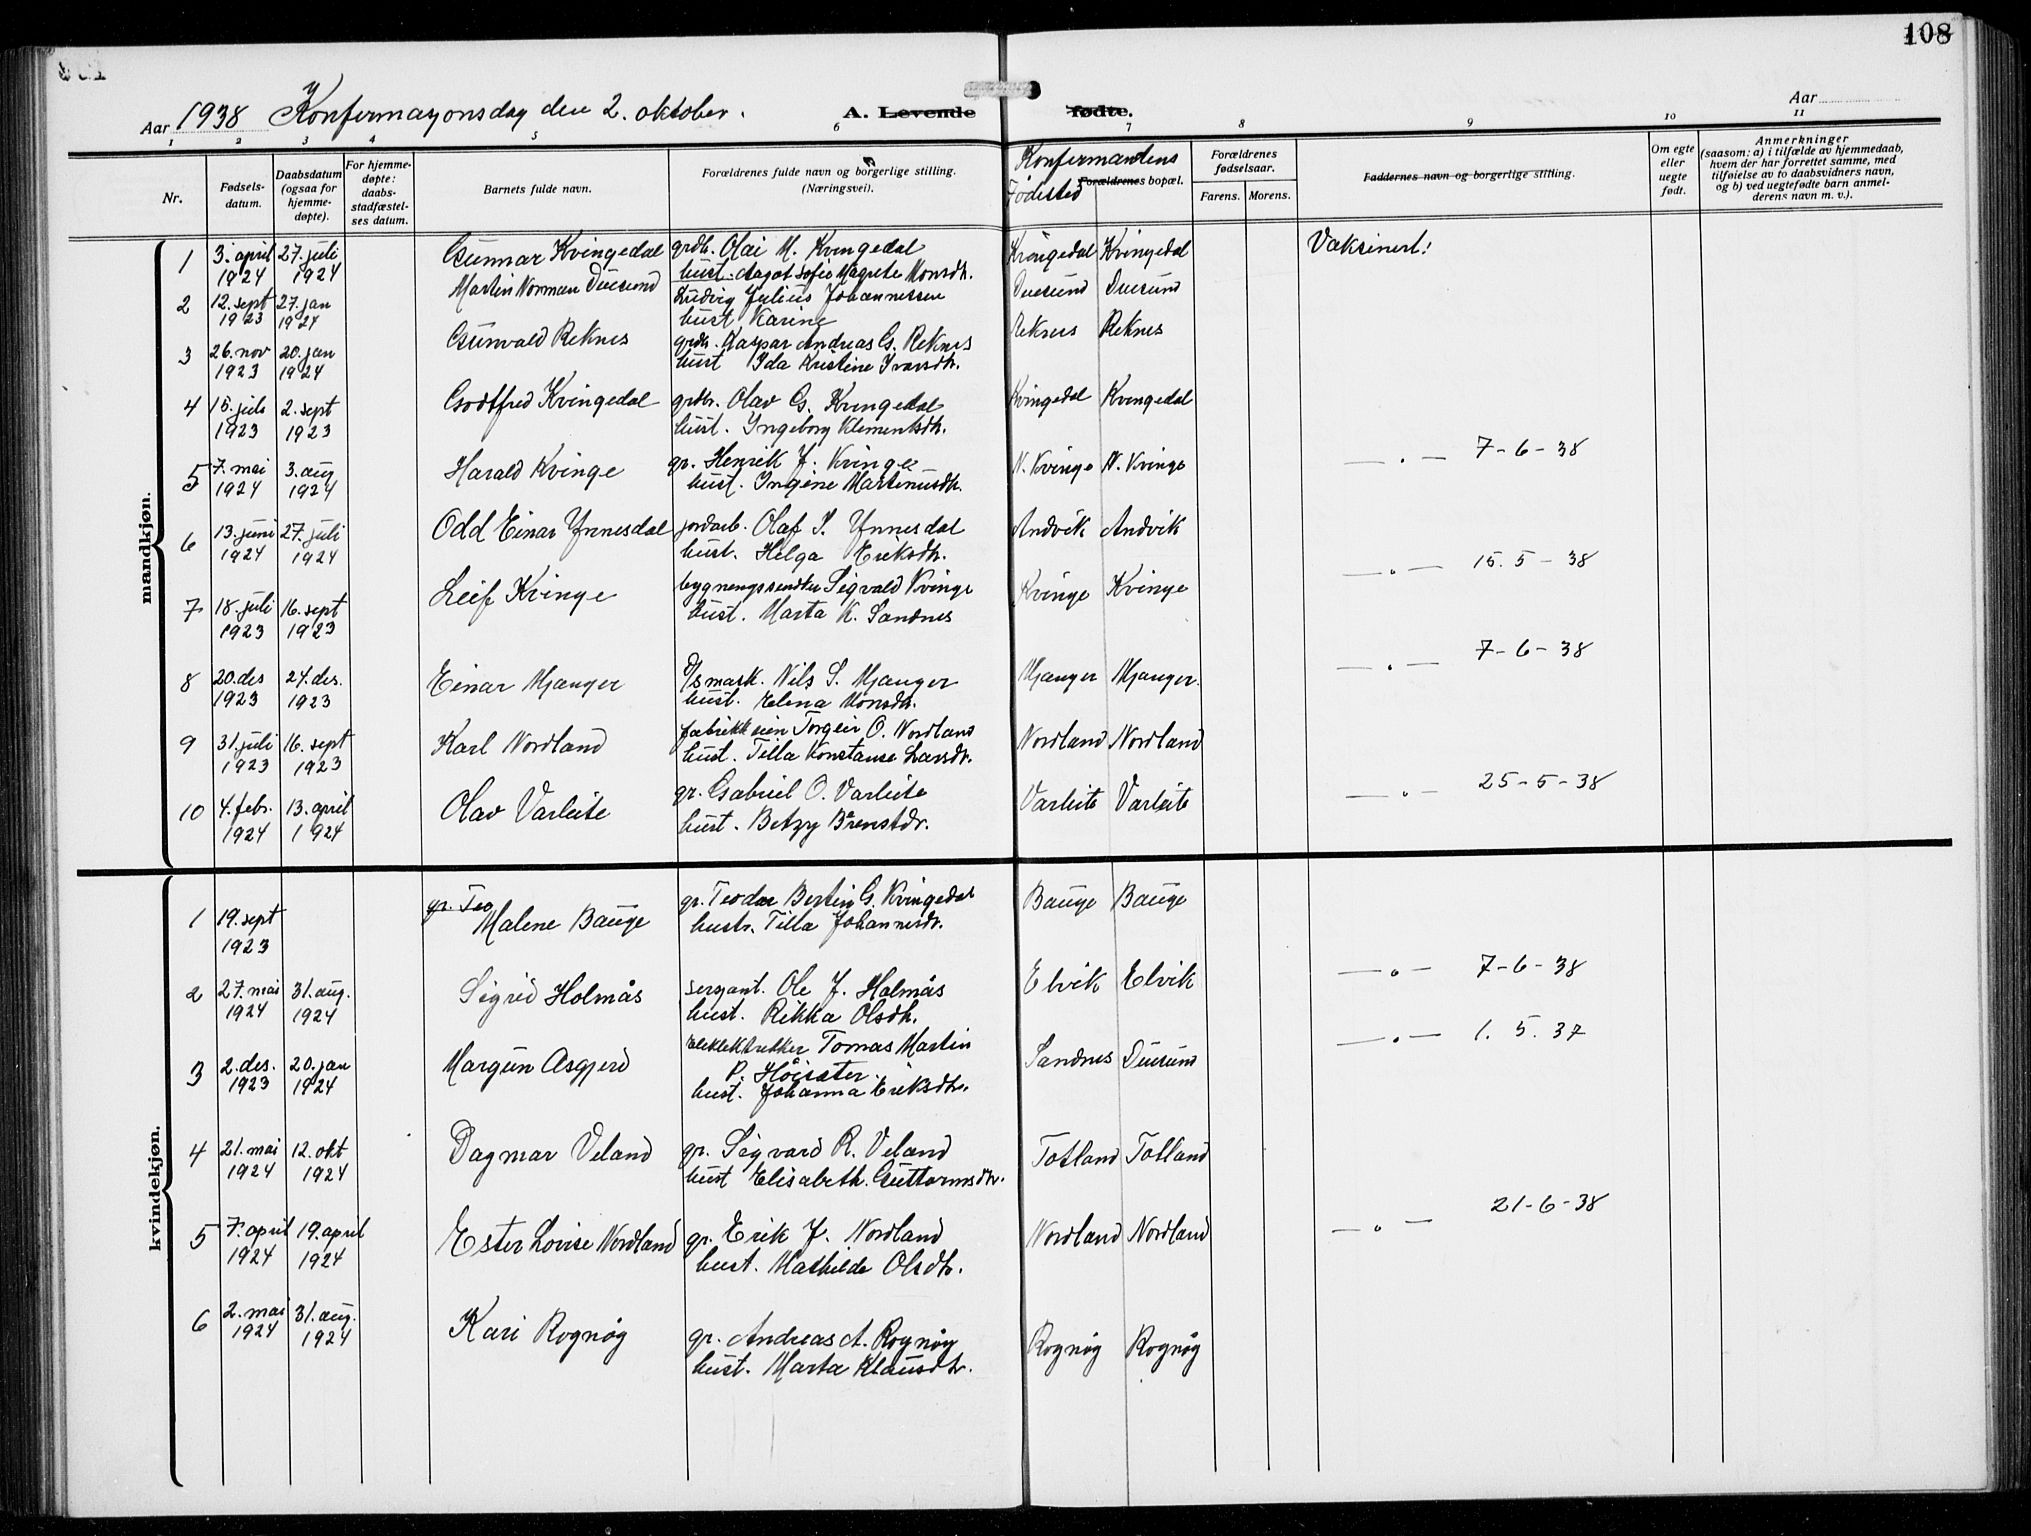 108
Aar 1938 Konfermasjonsdag den 2. oktober. A. Levende fødte. Aar
1 2 3 4 5 6 7 8 9 10 11
Nr. Fødsels-datum. Daabsdatum (ogsaa for hjemme-døpte). For hjemme-døpte: daabs-stadfæstel-ses datum. Barnets fulde navn. Forældrenes fulde navn og borgerlige stilling. (Næringsvei). Konfermandens Fødested Forældrenes bopæl. Forældrenes fødselsaar. Farens. Morens. Faddernes navn og borgerlige stilling. Om egte eller uegte født. Anmerkninger (saasom: a) i tilfælde av hjemmedaab, hvem der har forrettet samme, med tilføielse av to daabsvidners navn, og b) ved uegtefødte barn anmel-derens navn m. v.).
mandkjøn.
1 3. april 27. juli Gunnar Kvingedal grdb. Olai M. Kvingedal Kvingedal Kvingedal Vaksinert!
1924 1924 hust. Aagot Sofie Magrete Monsdh.
2 12. sept 27. jan Martin Norman Duesund Ludvig Julius Johannessen Duesund Duesund
1923 1924 hust Karine
3 26. nov 20. jan Gunvald Reknes grdb. Kaspar Andreas G. Reknes Reknes Reknes
1923 1924 hust Ida Kristine Ivarsdh.
4 15. juli 2. sept Godtfred Kvingedal grdbr. Olav G. Kvingedal Kvingedal Kvingedal
1923 1923 hust. Ingeborg Klementsdh.
5 7. mai 3. aug Harald Kvinge gr. Henrik J. Kvinge N. Kvinge N. Kvinge — „ — 7-6-38
1924 1924 hust. Ingine Martinusdh.
6 13. juni 27. juli Odd Einar Ynnesdal jordarb. Olaf I. Ynnesdal Andvik Andvik
1924 1924 hust. Helga Eriksdh.
— „ — 15. 5 - 38
7 18. juli 16. sept Leif Kvinge Sigvald Kvinge Kvinge Kvinge
1923 1923 hust. Marta K. Sandnes
8 20. des 24. des. Einar Mjanger Nils S. Mjanger Mjanger Mjanger. — „ — 7-6-38
1923 1923 hust. Elena Monsdh.
9 31. juli 16. sept Karl Nordland fabrikkeier Torgeir O. Nordland Nordland Nordland
1923 1923 hust. Tilla Konstanse Larsdr.
10 4. febr. 13. april Olav Varleite gr. Gabriel O. Varleite Varleite Varleite — „ — 25-5-38
1924 1924 hust. Betzy
kvindekjøn.
1 19. sept gr. Teo Malene Bauge gr. Teodor Bertin G. Kvingedal Bauge Bauge
1923 hustr. Tilla Johannesdr.
2 27. mai 31. aug. Sigrid Holmås sersjant. Ole J. Holmås Elvik Elvik — „ — 7-6-38
1924 1924 hust. Rikka Olsdh.
3 2. des. 20. jan Margun Asgjerd Tomas Martin Sandnes Duesund — „ — 1. 5. 37
1923 1924 P. Høisæter.
hust. Johanna Eriksdh.
4 21. mai 12. okt Dagmar Veland gr. Sigvard R. Veland Totland Totland
1924 1924 hust Elisabeth. Guttormsdh.
5 7. april 19. april Ester Lovise Nordland gr. Erik J. Nordland Nordland Nordland — „ — 21-6-38
1924 1924 hust. Mathilde Olsdh.
6 2. mai 31. aug. Kari Rognøy gr. Andreas A. Rognøy Rognøy Rognøy
1924 1924 hust. Marta Klausdh.